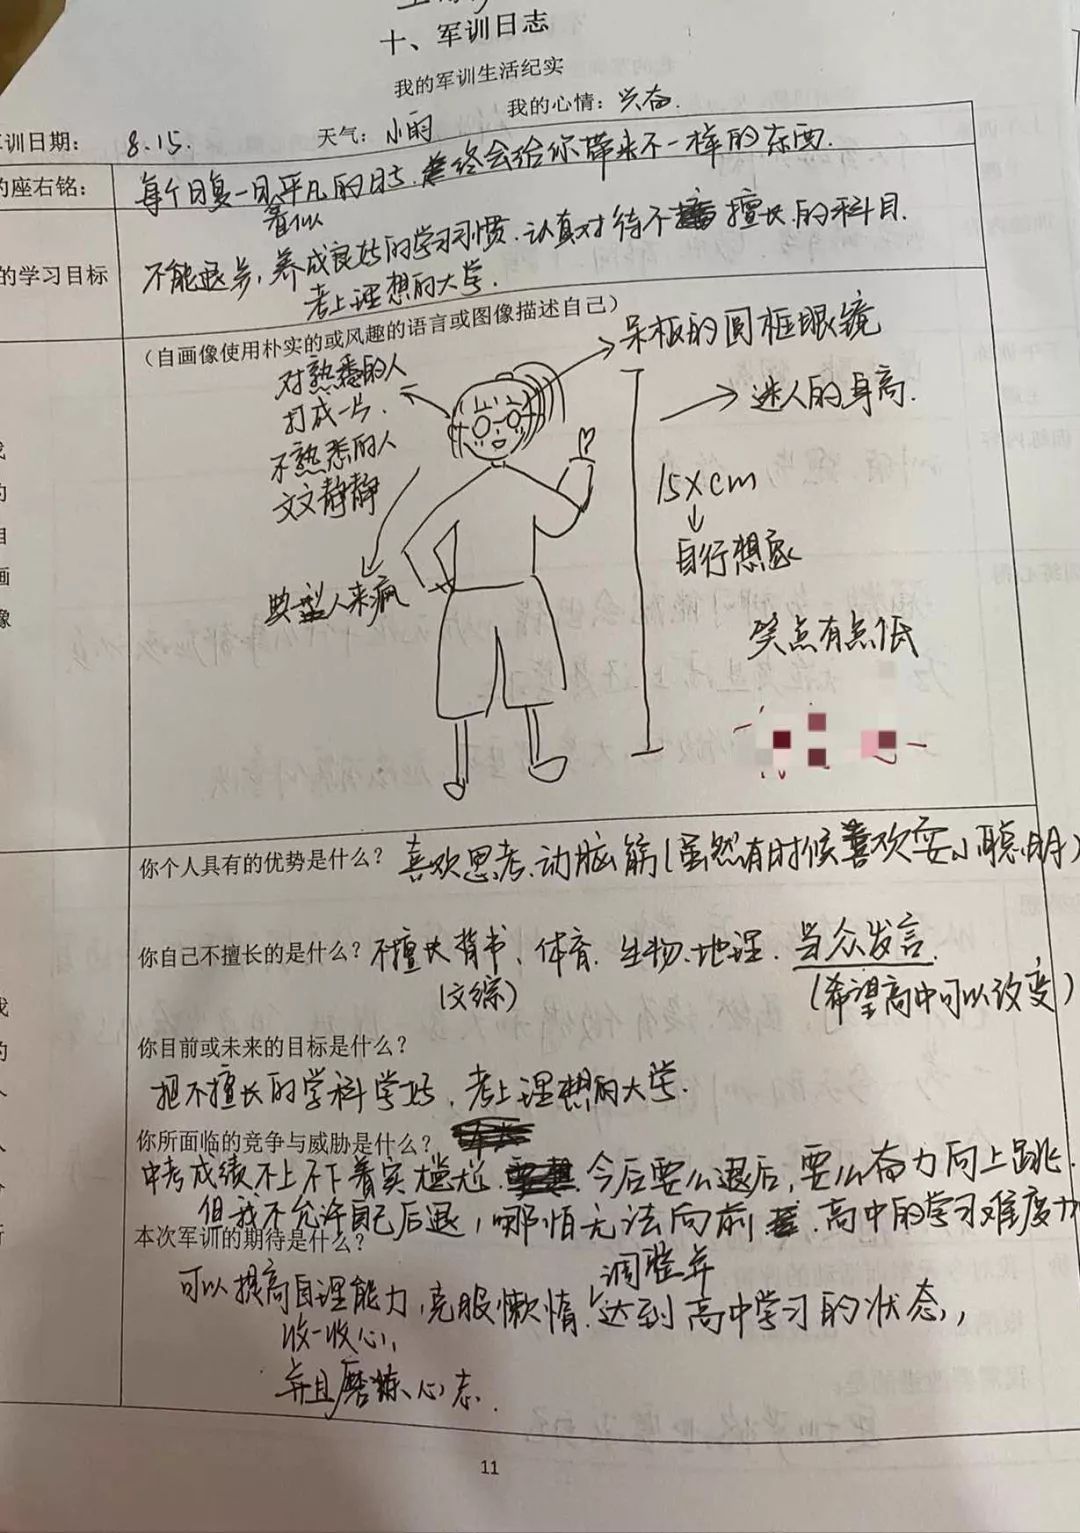 十、军训日志
我的军训生活纪实
训日期： 8.15. 天气：小雨 我的心情：兴奋.
的座右铭： 每个日复一日平凡的日子.终会给你带来不一样的东西.
看似
的学习目标 不能退步，养成良好的学习习惯.认真对待不擅长的科目.
考上理想的大学.
（自画像使用朴实的或风趣的语言或图像描述自己）
呆板的圆框眼镜
对熟悉的人
打成一片.
不熟悉的人
文文静静
迷人的身高.
15Xcm
自行想象
典型人来疯
笑点有点低
的
画
像
你个人具有的优势是什么？ 喜欢思考、动脑筋(虽然有时候喜欢耍小聪明)
你自己不擅长的是什么？ 不擅长背书、体育.生物、地理.当众发言.
(文综) (希望高中可以改变)
你目前或未来的目标是什么？
把不擅长的学科学好，考上理想的大学.
你所面临的竞争与威胁是什么？
中考成绩不上不下着实尴尬.今后要么退后，要么奋力向上跳.
但我不允许自己后退，哪怕无法向前.高中的学习难度大
本次军训的期待是什么？
调整并
可以提高自理能力,克服懒惰.达到高中学习的状态,
收一收心,
并且磨炼心志.
11